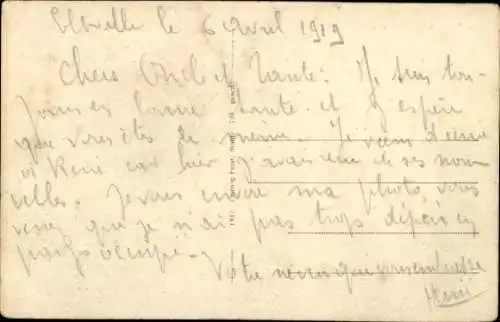 Eltville le 6 Avril 1919
Chers Oncle et Tante: Je suis tou-
jours en bonne santé et j'espère
que vous êtes de meme. Je viens d'écrire
à René car hier j'avais reçu de ses nou-
velles. Je vous envoie ma photo, vous
verrez que je n'ai pas trop dépéri en
pays occupé. Votre neveu qui vous embrasse
Henri